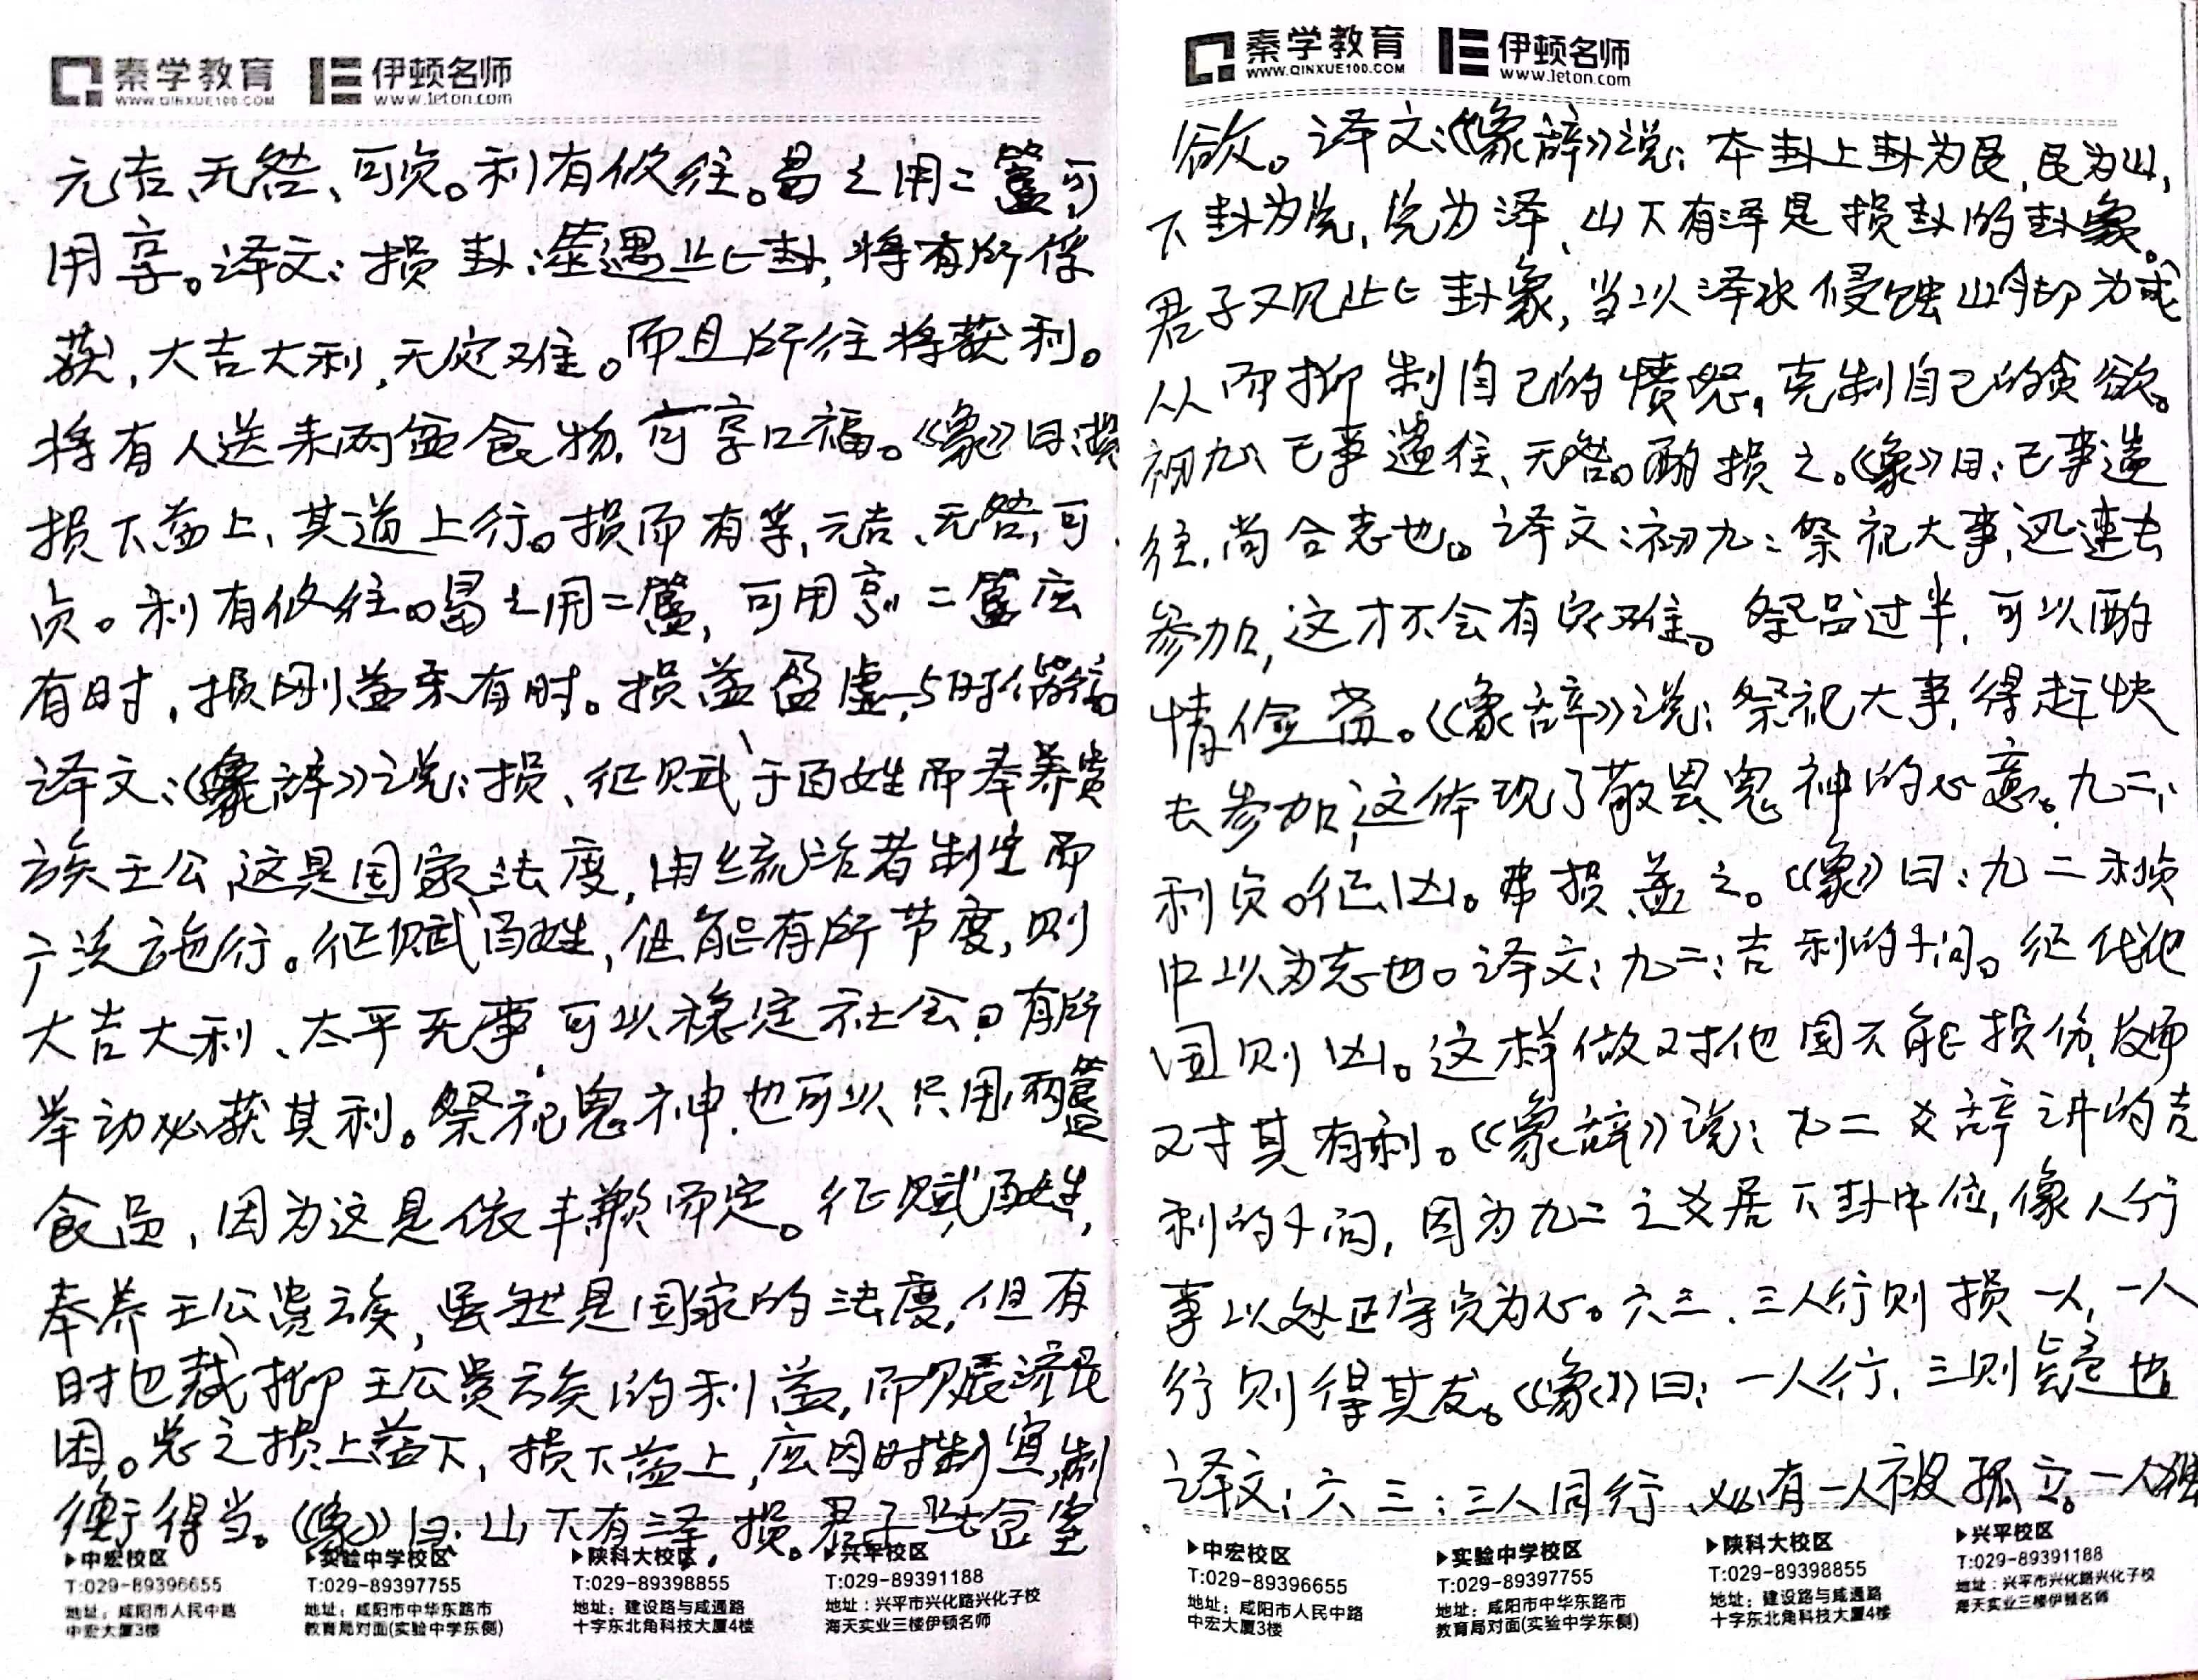 秦学教育 伊顿名师
WWW.QINXUE100.COM www.leton.com
元吉、无咎、可贞。利有攸往。曷之用二簋可
用享。译文：损卦：筮遇此卦，将有所俘
获，大吉大利，无灾难。而且所往将获利。
将有人送来两盒食物，可享口福。《彖》曰：损
损下益上、其道上行。损而有孚，元吉、无咎，可
贞。利有攸往。曷之用二簋，可用享，二簋应
有时，损刚益柔有时。损益盈虚，与时偕行
译文：《彖辞》说：损、征赋于百姓而奉养贵
族王公，这是国家法度，由统治者制定而
广泛施行。征赋百姓，但能有所节度，则
大吉大利、太平无事，可以稳定社会。有所
举动必获其利。祭祀鬼神，也可以只用两簋
食品，因为这是依丰歉而定。征赋百姓，
奉养王公贵族，虽然是国家的法度，但有
时也裁抑王公贵族的利益，而赈济民
困。总之损上益下，损下益上，应因时制宜，制
衡得当。《象》曰：山下有泽，损。君子以惩忿窒
▶中宏校区 ▶实验中学校区 ▶陕科大校区 ▶兴平校区
T:029-89396655 T:029-89397755 T:029-89398855 T:029-89391188
地址：咸阳市人民中路 地址：咸阳市中华东路市 地址：建设路与咸通路 地址：兴平市兴化路兴化子校
中宏大厦3楼 教育局对面(实验中学东侧) 十字东北角科技大厦4楼 海天实业三楼伊顿名师
秦学教育 伊顿名师
WWW.QINXUE100.COM www.leton.com
欲。译文：《象辞》说：本卦上卦为艮，艮为山，
下卦为兑，兑为泽，山下有泽是损卦的卦象。
君子观此卦象，当以泽水侵蚀山脚为戒
从而抑制自己的愤怒，克制自己的贪欲。
初九、已事遄往、无咎。酌损之。《象》曰：已事遄
往，尚合志也。译文：初九：祭祀大事，迅速去
参加，这才不会有灾难。祭品过半，可以酌
情俭啬。《象辞》说：祭祀大事，得赶快
去参加，这体现了敬畏鬼神的心意。九二、
利贞。征凶。弗损益之。《象》曰：九二利贞
中以为志也。译文：九二：吉利的卜问。征伐他
国则凶。这样做对他国不能损伤，反而
对其有利。《象辞》说：九二爻辞讲的吉
利的卜问，因为九二之爻居下卦中位，像人行
事以处正守贞为心。六三、三人行则损一人，一人
行则得其友。《象》曰：一人行，三则疑也
译文：六三：三人同行，必有一人被孤立。一人独
▶中宏校区 ▶实验中学校区 ▶陕科大校区 ▶兴平校区
T:029-89396655 T:029-89397755 T:029-89398855 T:029-89391188
地址：咸阳市人民中路 地址：咸阳市中华东路市 地址：建设路与咸通路 地址：兴平市兴化路兴化子校
中宏大厦3楼 教育局对面(实验中学东侧) 十字东北角科技大厦4楼 海天实业三楼伊顿名师